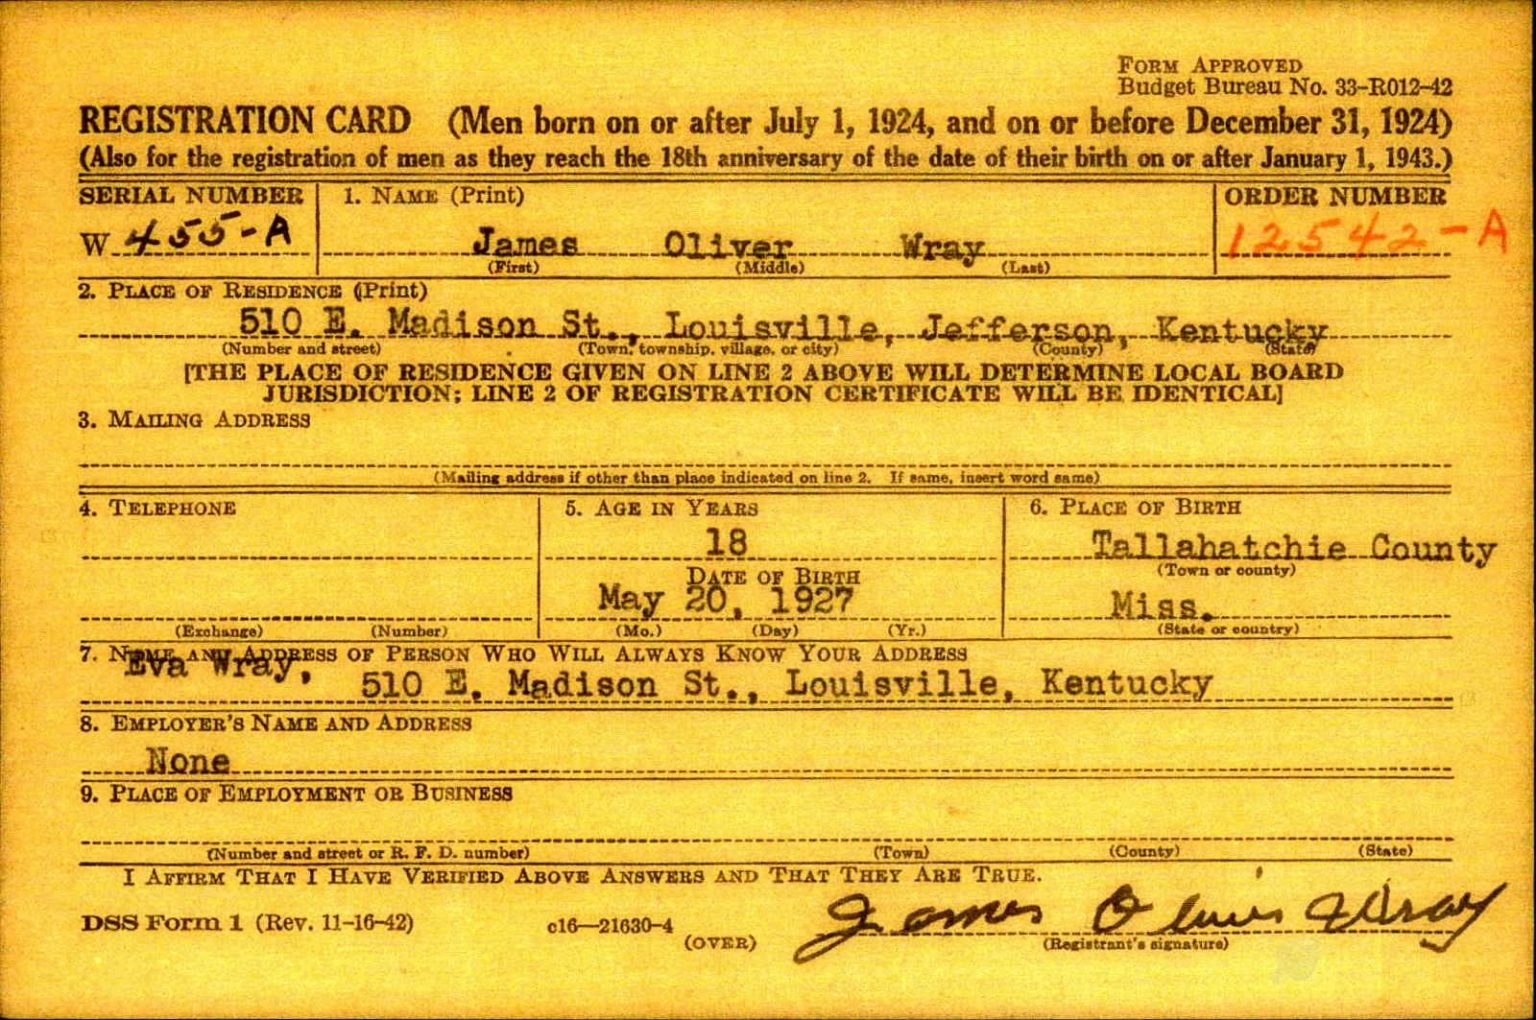 FORM APPROVED
Budget Bureau No. 33-R012-42
REGISTRATION CARD (Men born on or after July 1, 1924, and on or before December 31, 1924)
(Also for the registration of men as they reach the 18th anniversary of the date of their birth on or after January 1, 1943.)
SERIAL NUMBER 1. NAME (Print) ORDER NUMBER
W 455-A James Oliver Wray 12542-A
(First) (Middle) (Last)
2. PLACE OF RESIDENCE (Print)
510 E. Madison St., Louisville, Jefferson, Kentucky
(Number and street) (Town, township, village, or city) (County) (State)
[THE PLACE OF RESIDENCE GIVEN ON LINE 2 ABOVE WILL DETERMINE LOCAL BOARD
JURISDICTION; LINE 2 OF REGISTRATION CERTIFICATE WILL BE IDENTICAL]
3. MAILING ADDRESS
(Mailing address if other than place indicated on line 2. If same, insert word same)
4. TELEPHONE 5. AGE IN YEARS 6. PLACE OF BIRTH
18 Tallahatchie County
DATE OF BIRTH (Town or county)
May 20, 1927 Miss.
(Exchange) (Number) (Mo.) (Day) (Yr.) (State or country)
7. NAME AND ADDRESS OF PERSON WHO WILL ALWAYS KNOW YOUR ADDRESS
Eva Wray, 510 E. Madison St., Louisville, Kentucky
8. EMPLOYER'S NAME AND ADDRESS
None
9. PLACE OF EMPLOYMENT OR BUSINESS
(Number and street or R. F. D. number) (Town) (County) (State)
I AFFIRM THAT I HAVE VERIFIED ABOVE ANSWERS AND THAT THEY ARE TRUE.
DSS Form 1 (Rev. 11-16-42) c16—21630-4 James Oliver Wray
(OVER) (Registrant's signature)